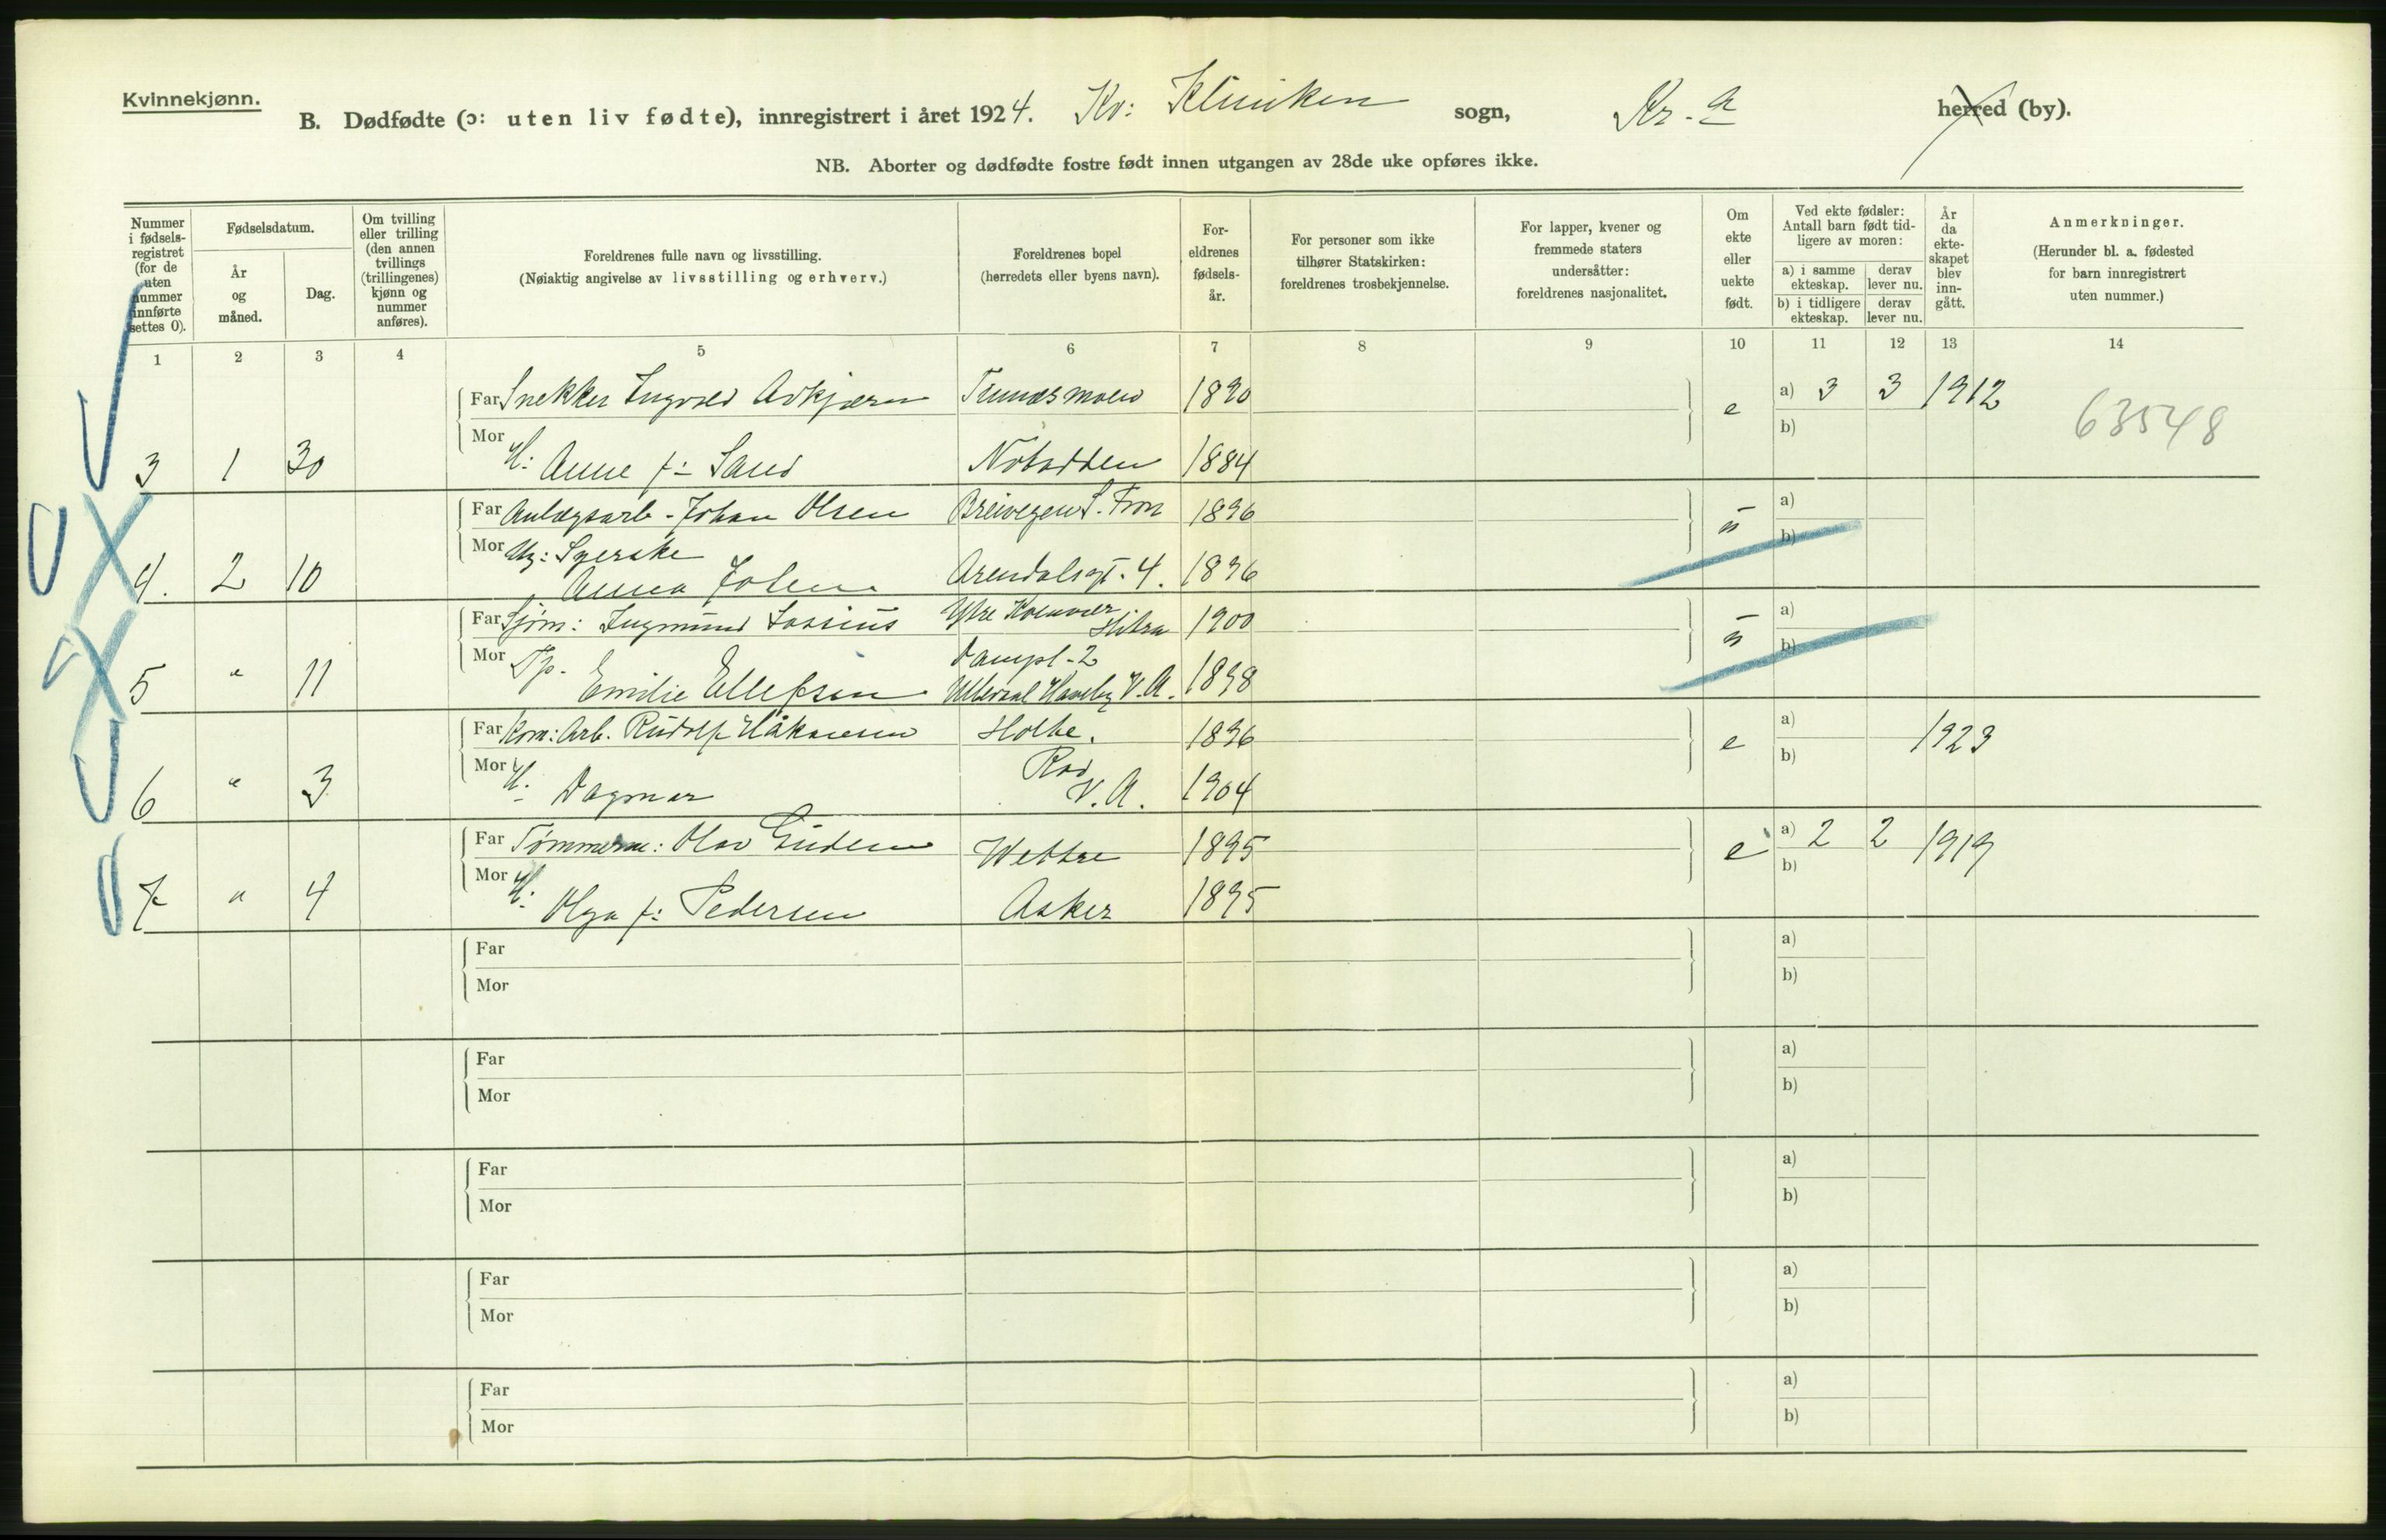 Kvinnekjønn.
B. Dødfødte (ɔ: uten liv fødte), innregistrert i året 1924. Kv: Kliniken sogn, Kr.a herred (by).
NB. Aborter og dødfødte fostre født innen utgangen av 28de uke opføres ikke.
Nummer i fødsels-registret (for de uten nummer innførte settes 0).
Fødselsdatum.
År og måned.
Dag.
Om tvilling eller trilling (den annen tvillings (trillingenes) kjønn og nummer anføres).
Foreldrenes fulle navn og livsstilling.
(Nøiaktig angivelse av livsstilling og erhverv.)
Foreldrenes bopel
(herredets eller byens navn).
For-eldrenes fødsels-år.
For personer som ikke tilhører Statskirken: foreldrenes trosbekjennelse.
For lapper, kvener og fremmede staters undersåtter: foreldrenes nasjonalitet.
Om ekte eller uekte født.
Ved ekte fødsler: Antall barn født tid-ligere av moren:
a) i samme ekteskap. derav lever nu.
b) i tidligere ekteskap. derav lever nu.
År da ekte-skapet blev inn-gått.
Anmerkninger.
(Herunder bl. a. fødested for barn innregistrert uten nummer.)
1 2 3 4 5 6 7 8 9 10 11 12 13 14
Far Snekker 1890 e a) 3 3 1912
63548
3 1 30 Mor H: Anne f: Sand Notodden 1884 b)
Far Anlægsarb. Johan Olsen Breivegen S. Fron 1896 u a)
4. 2 10 Mor Ug: Syerske b)
Anna Arendalsgt. 4. 1896
Far Sjøm: Ingmund Lossius Ytre Hitra 1900 u a)
5 " 11 Mor Tp. Dampl. 2 b)
Emilie Ellefsen Ullevaal Haveby V. A. 1898
Far Kom: Arb. Rudolf Håkansen 1896 e a) 1923
6 " 3 Mor H: Dagmar V. A. 1904 b)
Far Tømmerm: Olav 1895 e a) 2 2 1919
7 " 4 Mor H: Olga f: Pedersen Asker 1895 b)
Far a)
Mor b)
Far a)
Mor b)
Far a)
Mor b)
Far a)
Mor b)
Far a)
Mor b)